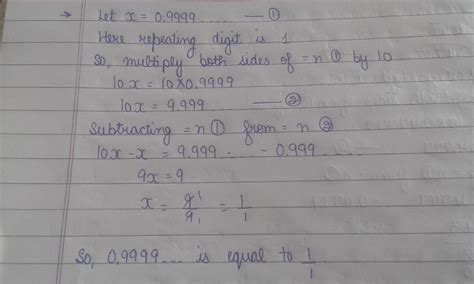 → Let x = 0.9999...... —— ①
Here repeating digit is 1
So, multiply both sides of =n ① by 10
10x = 10×0.9999
10x = 9.999 —— ②
Subtracting =n ① from =n ②
10x - x = 9.999... - 0.999...
9x = 9
x = 9/9 = 1/1
So, 0.9999... is equal to 1/1